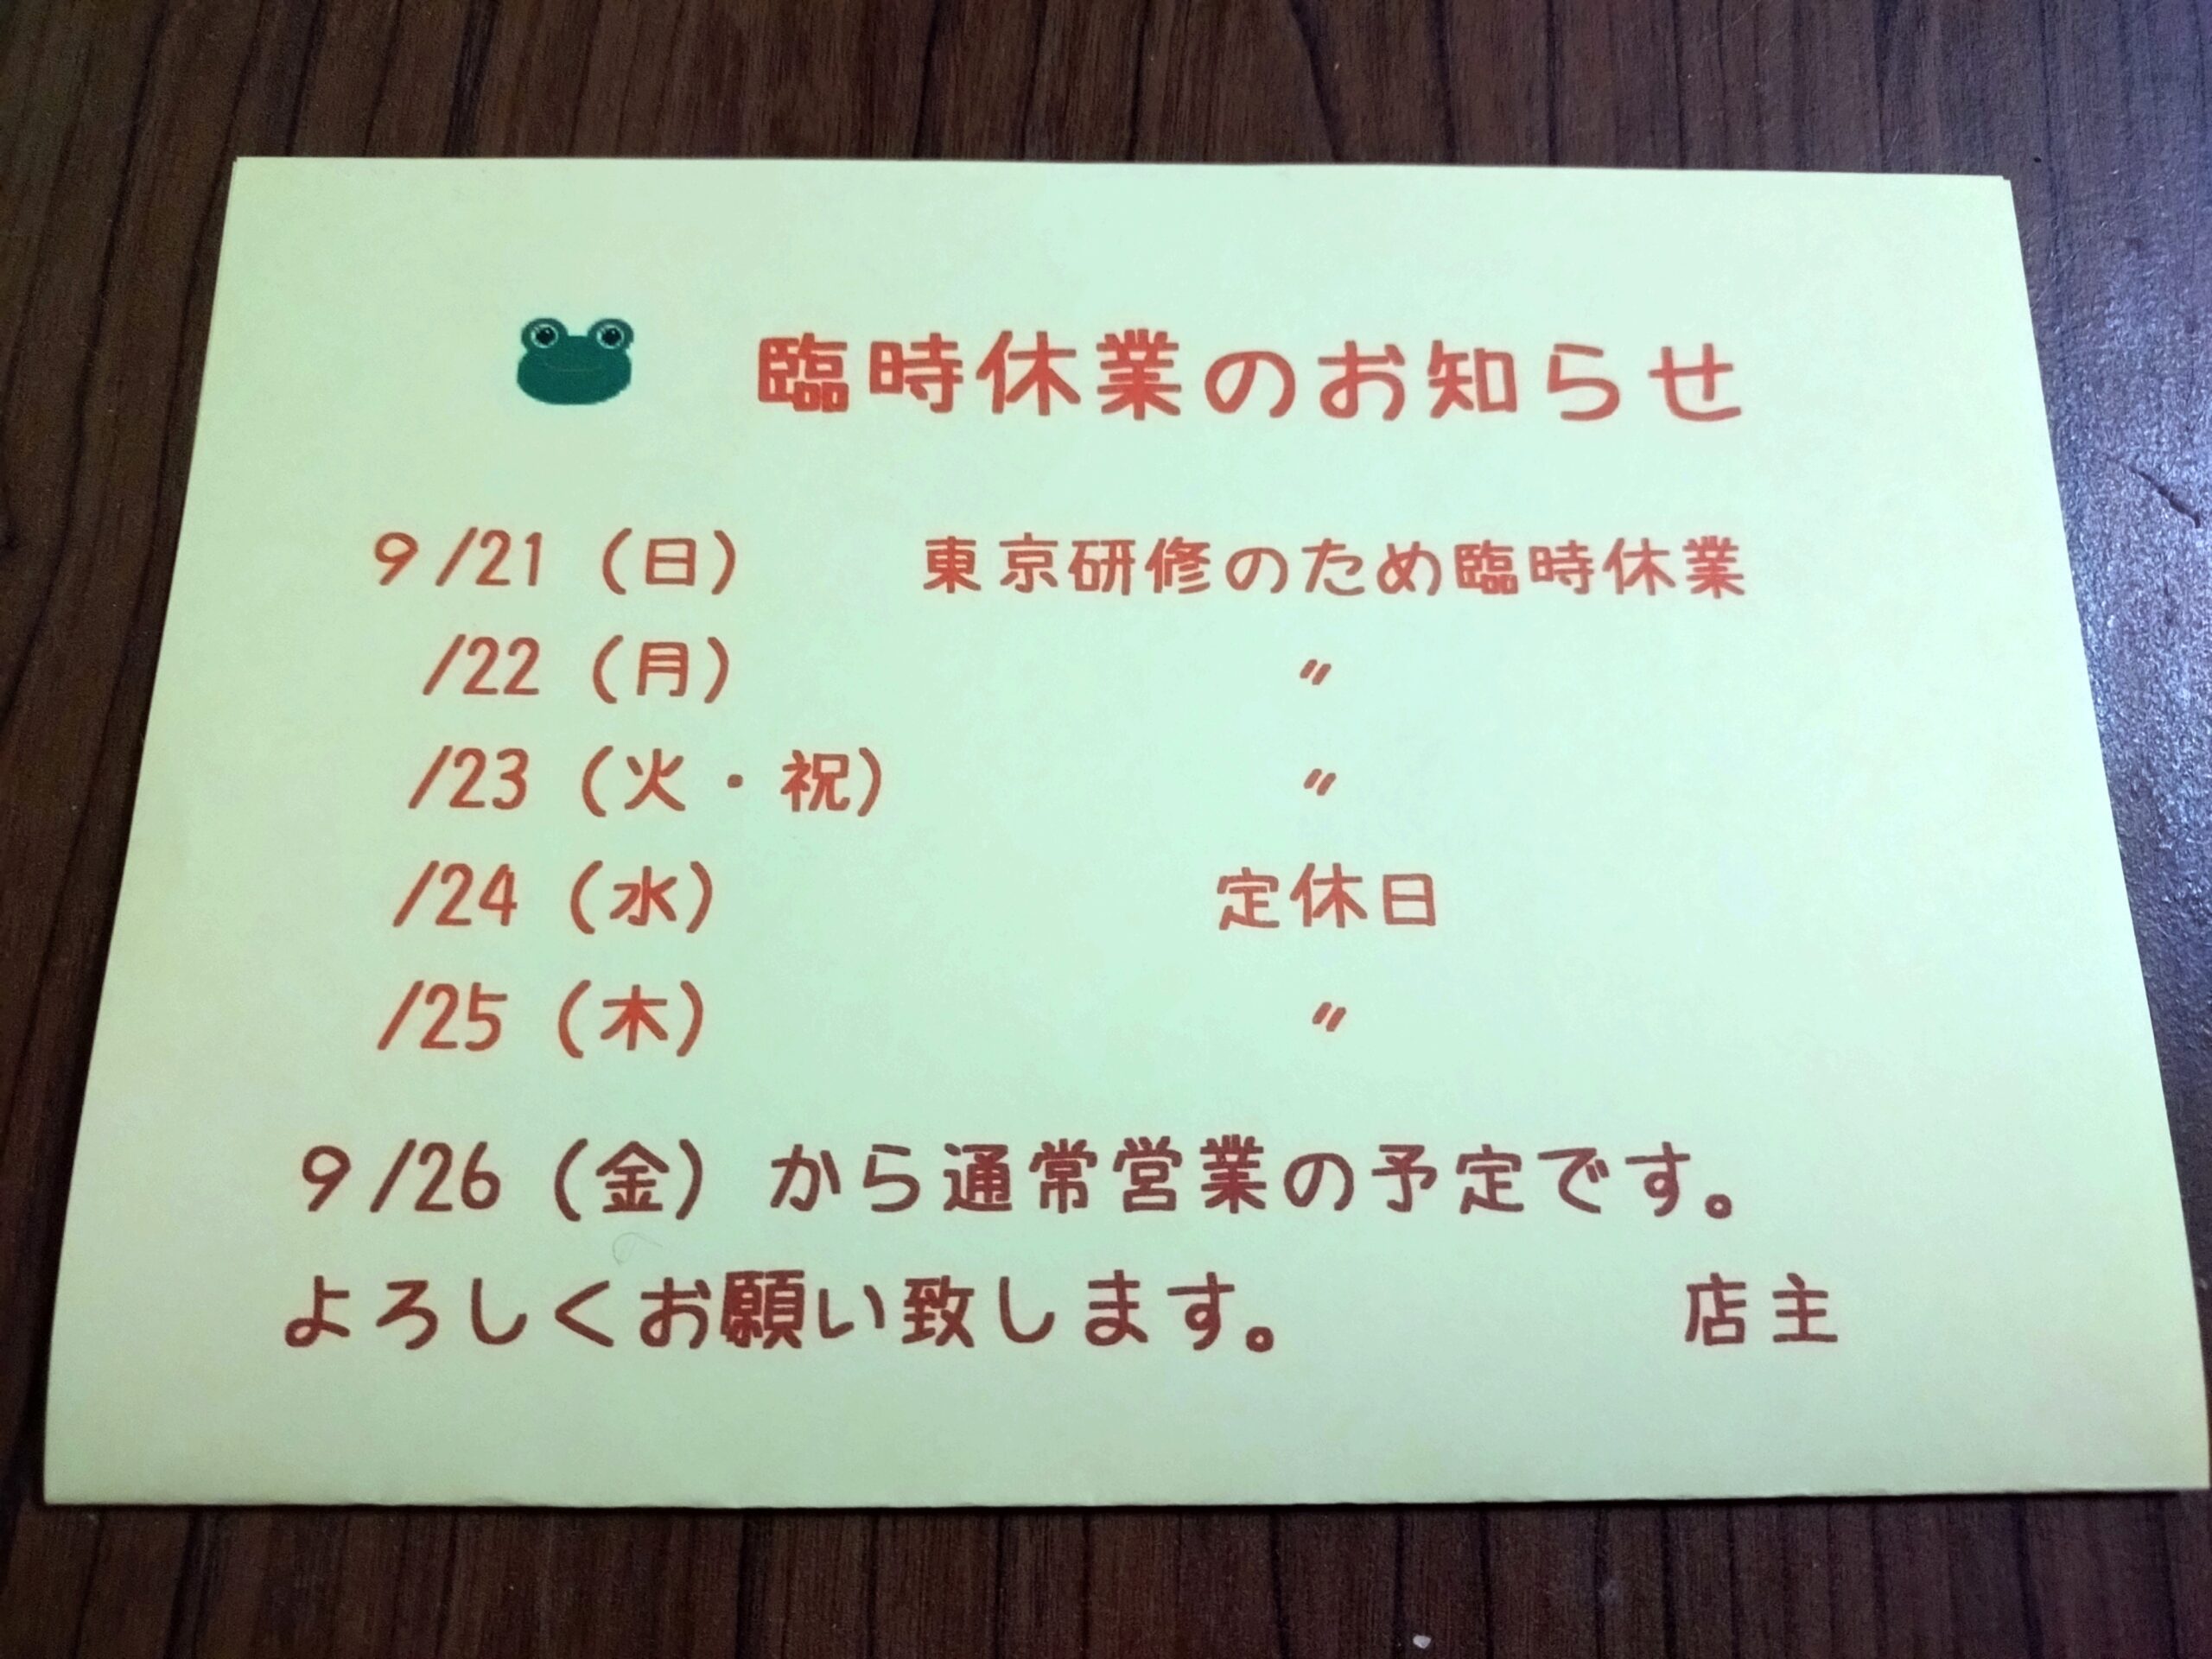 臨時休業のお知らせ
9/21（日） 東京研修のため臨時休業
/22（月） 〃
/23（火・祝） 〃
/24（水） 定休日
/25（木） 〃
9/26（金）から通常営業の予定です。
よろしくお願い致します。 店主